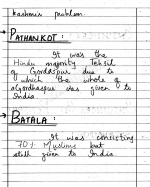 Kashmir problem.
→ PATHANKOT :
It was the
Hindu majority Tehsil
of Gordaspur due to
which the whole of
Gordhaspur was given to
India
→ BATALA :
It was consisting
70% Muslims but
still given to India